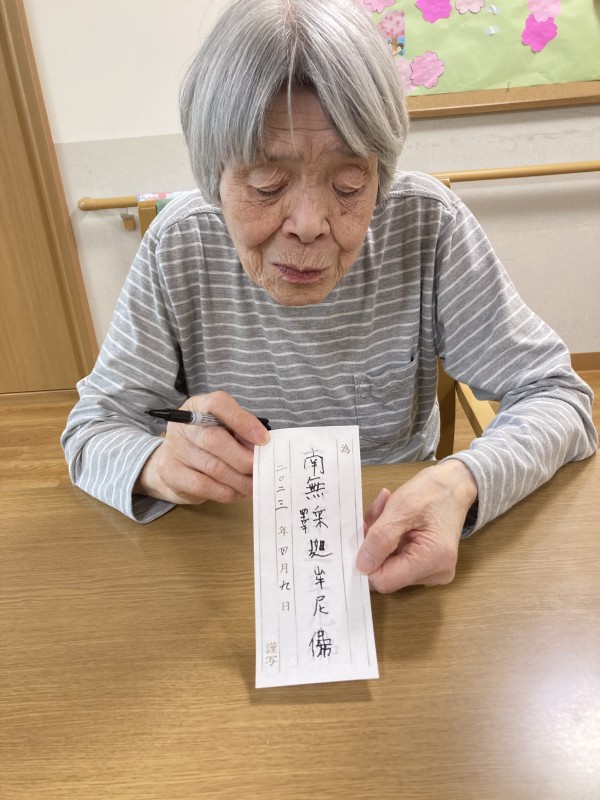 為
南無釋迦牟尼佛
二〇二三年四月九日
謹写